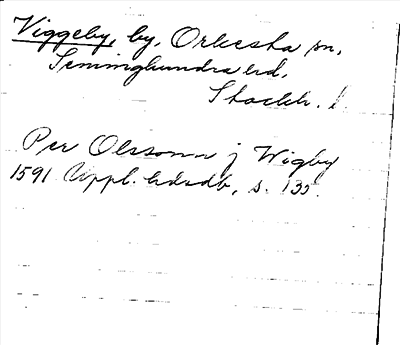 Viggeby, by, Orkesta sn,
Seminghundra hd,
Stockh. l.
Per Olssonn j Wigby
1591 Uppl. hdsdb, s. 135.